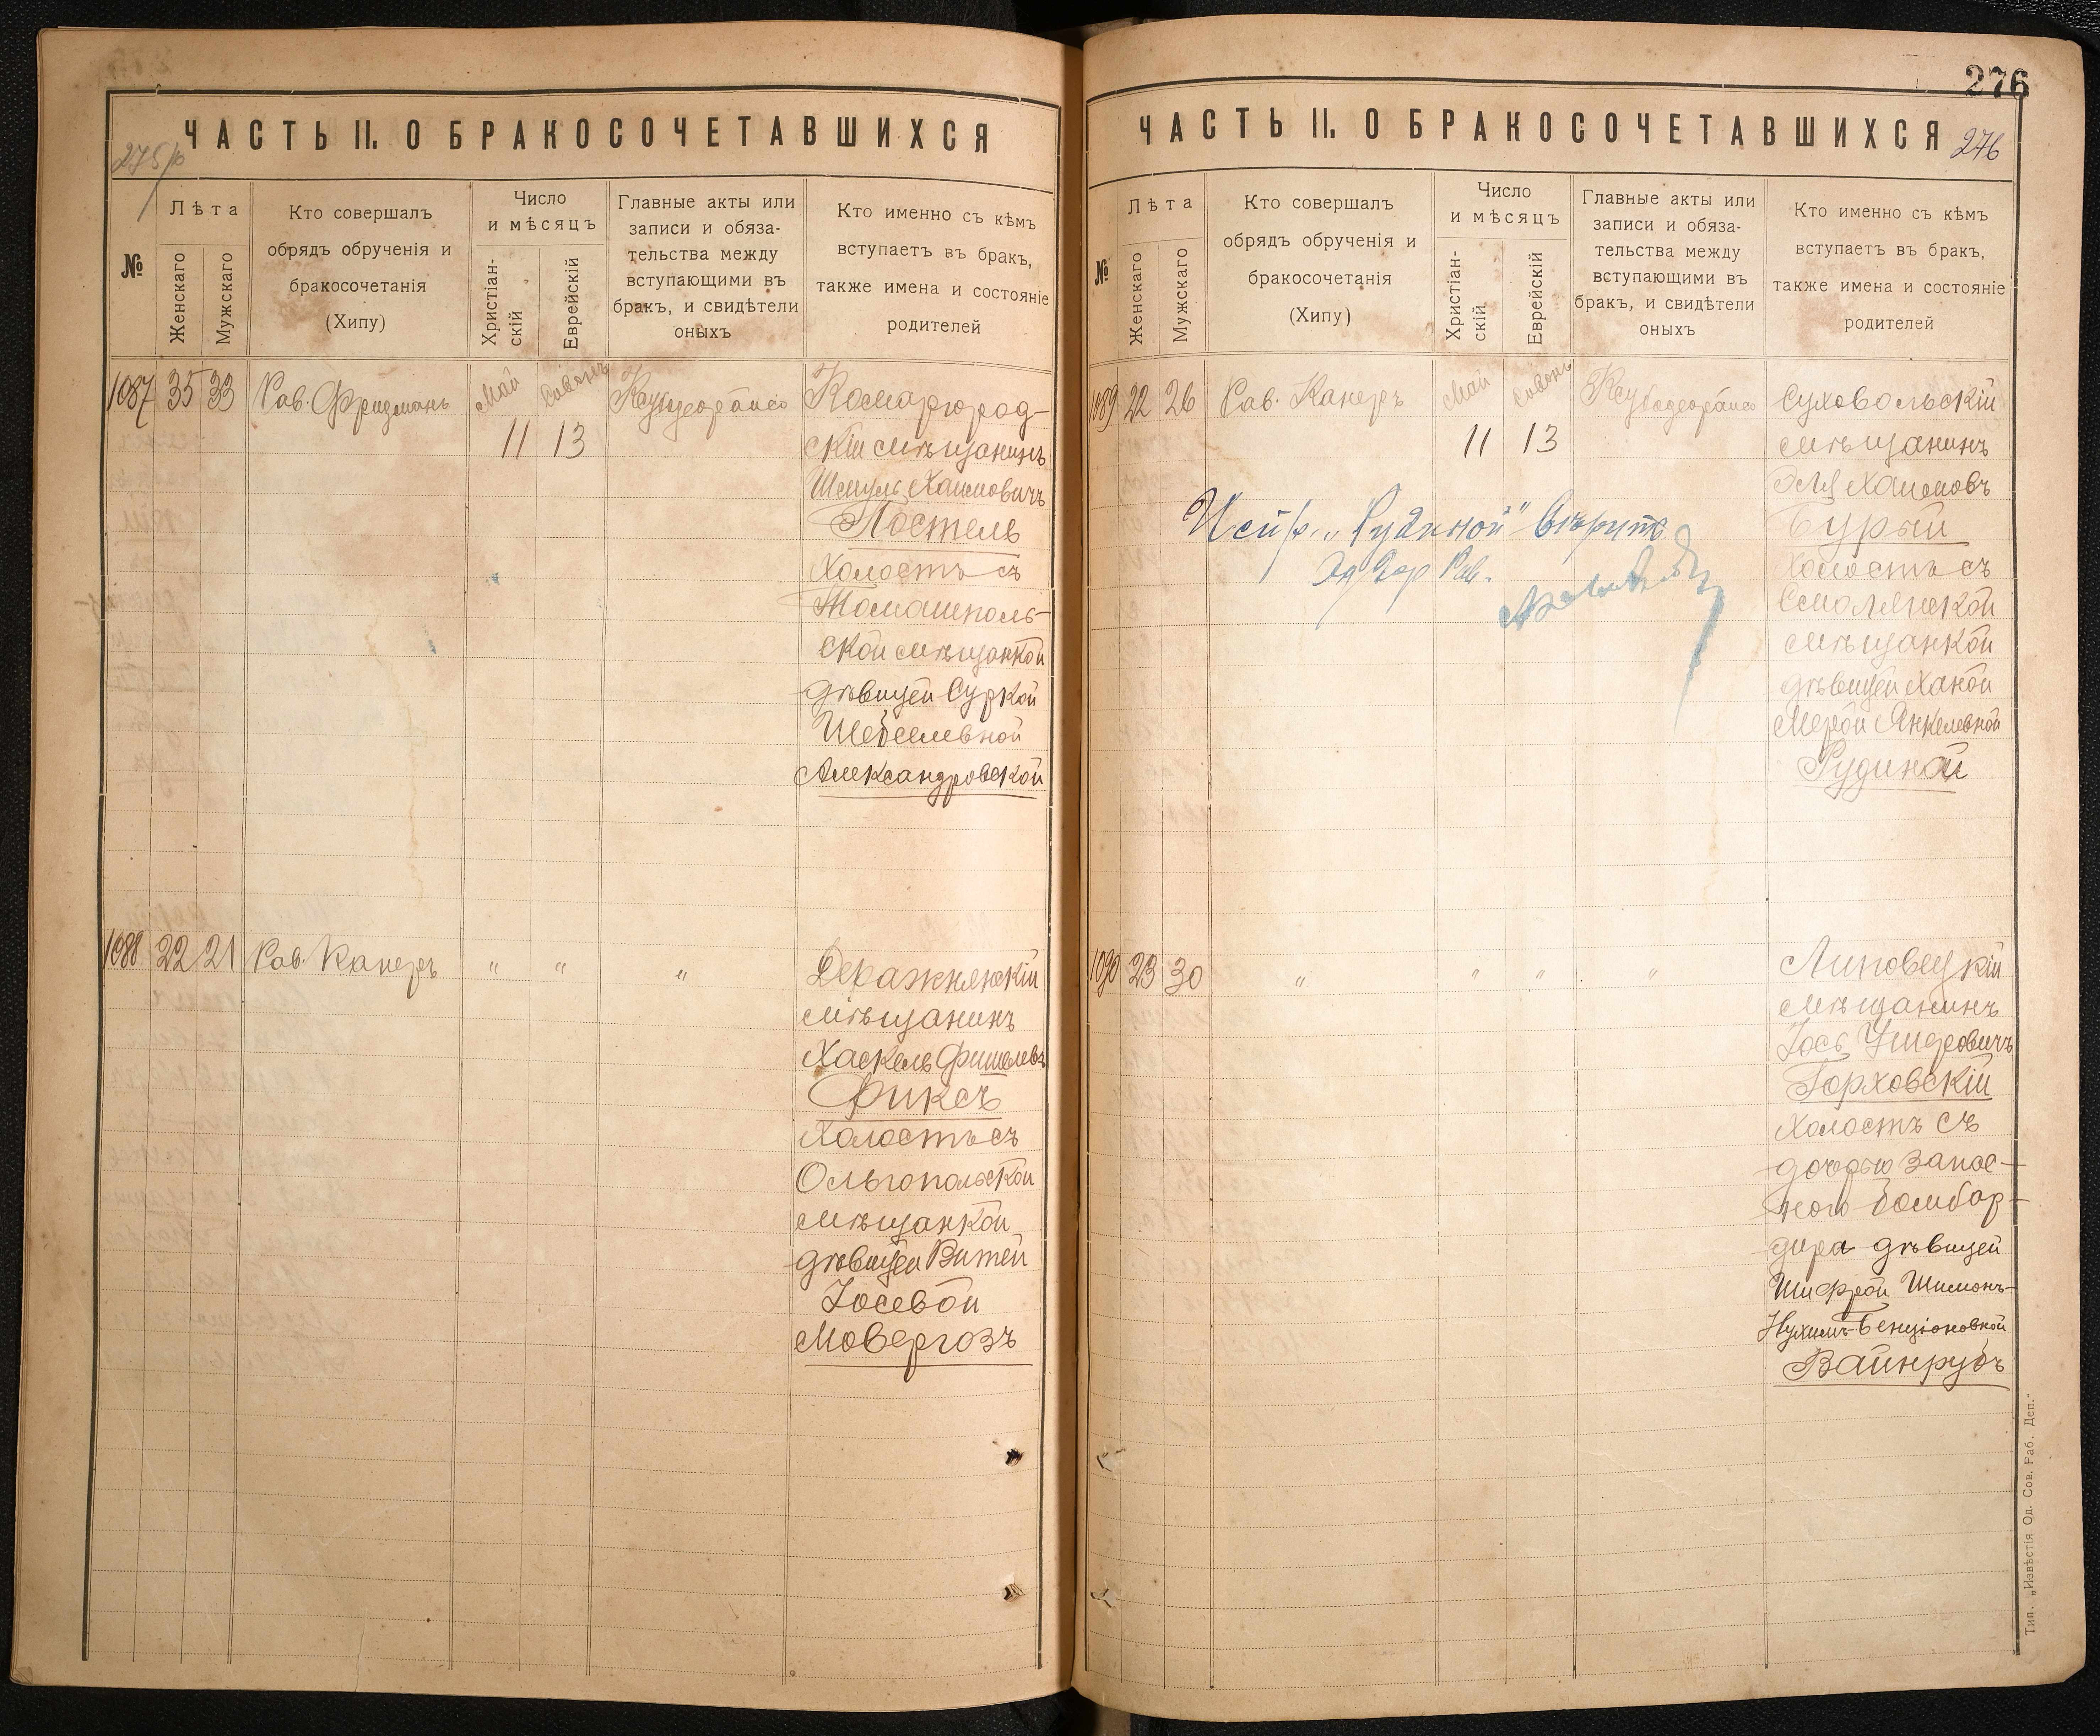 ЧАСТЬ II. О БРАКОСОЧЕТАВШИХСЯ
№
Лѣта
Женскаго
Мужскаго
Кто совершалъ
обрядъ обрученія и
бракосочетанія
(Хипу)
Число
и мѣсяцъ
Христіан-
скій
Еврейскій
Главные акты или
записи и обяза-
тельства между
вступающими въ
бракъ, и свидѣтели
оныхъ
Кто именно съ кѣмъ
вступаетъ въ бракъ,
также имена и состояніе
родителей
1087 35 33 Рав. Фридманъ Май Сивонъ
11 13
Комаргород-
скій мѣщанинъ
Шмуль Хаимовичъ
Постель
Холостъ съ
Томашполь-
ской мѣщанкой
дѣвицей Суркой
Шепселевной
Александровской
1088 22 21 Рав. Канеръ " " "
Деражнянскій
мѣщанинъ
Хаскель Фишелевъ
Фиксъ
Холостъ съ
Ольгопольской
мѣщанкой
дѣвицей Витей
Іосевой
Мовергозъ
276
ЧАСТЬ II. О БРАКОСОЧЕТАВШИХСЯ
276
№
Лѣта
Женскаго
Мужскаго
Кто совершалъ
обрядъ обрученія и
бракосочетанія
(Хипу)
Число
и мѣсяцъ
Христіан-
скій
Еврейскій
Главные акты или
записи и обяза-
тельства между
вступающими въ
бракъ, и свидѣтели
оныхъ
Кто именно съ кѣмъ
вступаетъ въ бракъ,
также имена и состояніе
родителей
1089 22 26 Рав. Канеръ Май Сивонъ
11 13
Суховольскій
мѣщанинъ
Эля Хаимовъ
Бурый
Холостъ съ
Смолянской
мѣщанкой
дѣвицей Ханой
Мерой Янкелевной
Рудиной
Испр. „Рудиной" вѣрить
Рав.
1090 23 30 " " " "
Липовецкій
мѣщанинъ
Іось Ушеровичъ
Горховскій
Холостъ съ
дочерью запас-
ного бомбар-
дира дѣвицей
Шифрой Шимонъ-
Нухимъ-Бенціоновной
Вайнрубъ
Тип. „Извѣстія Од. Сов. Раб. Деп."